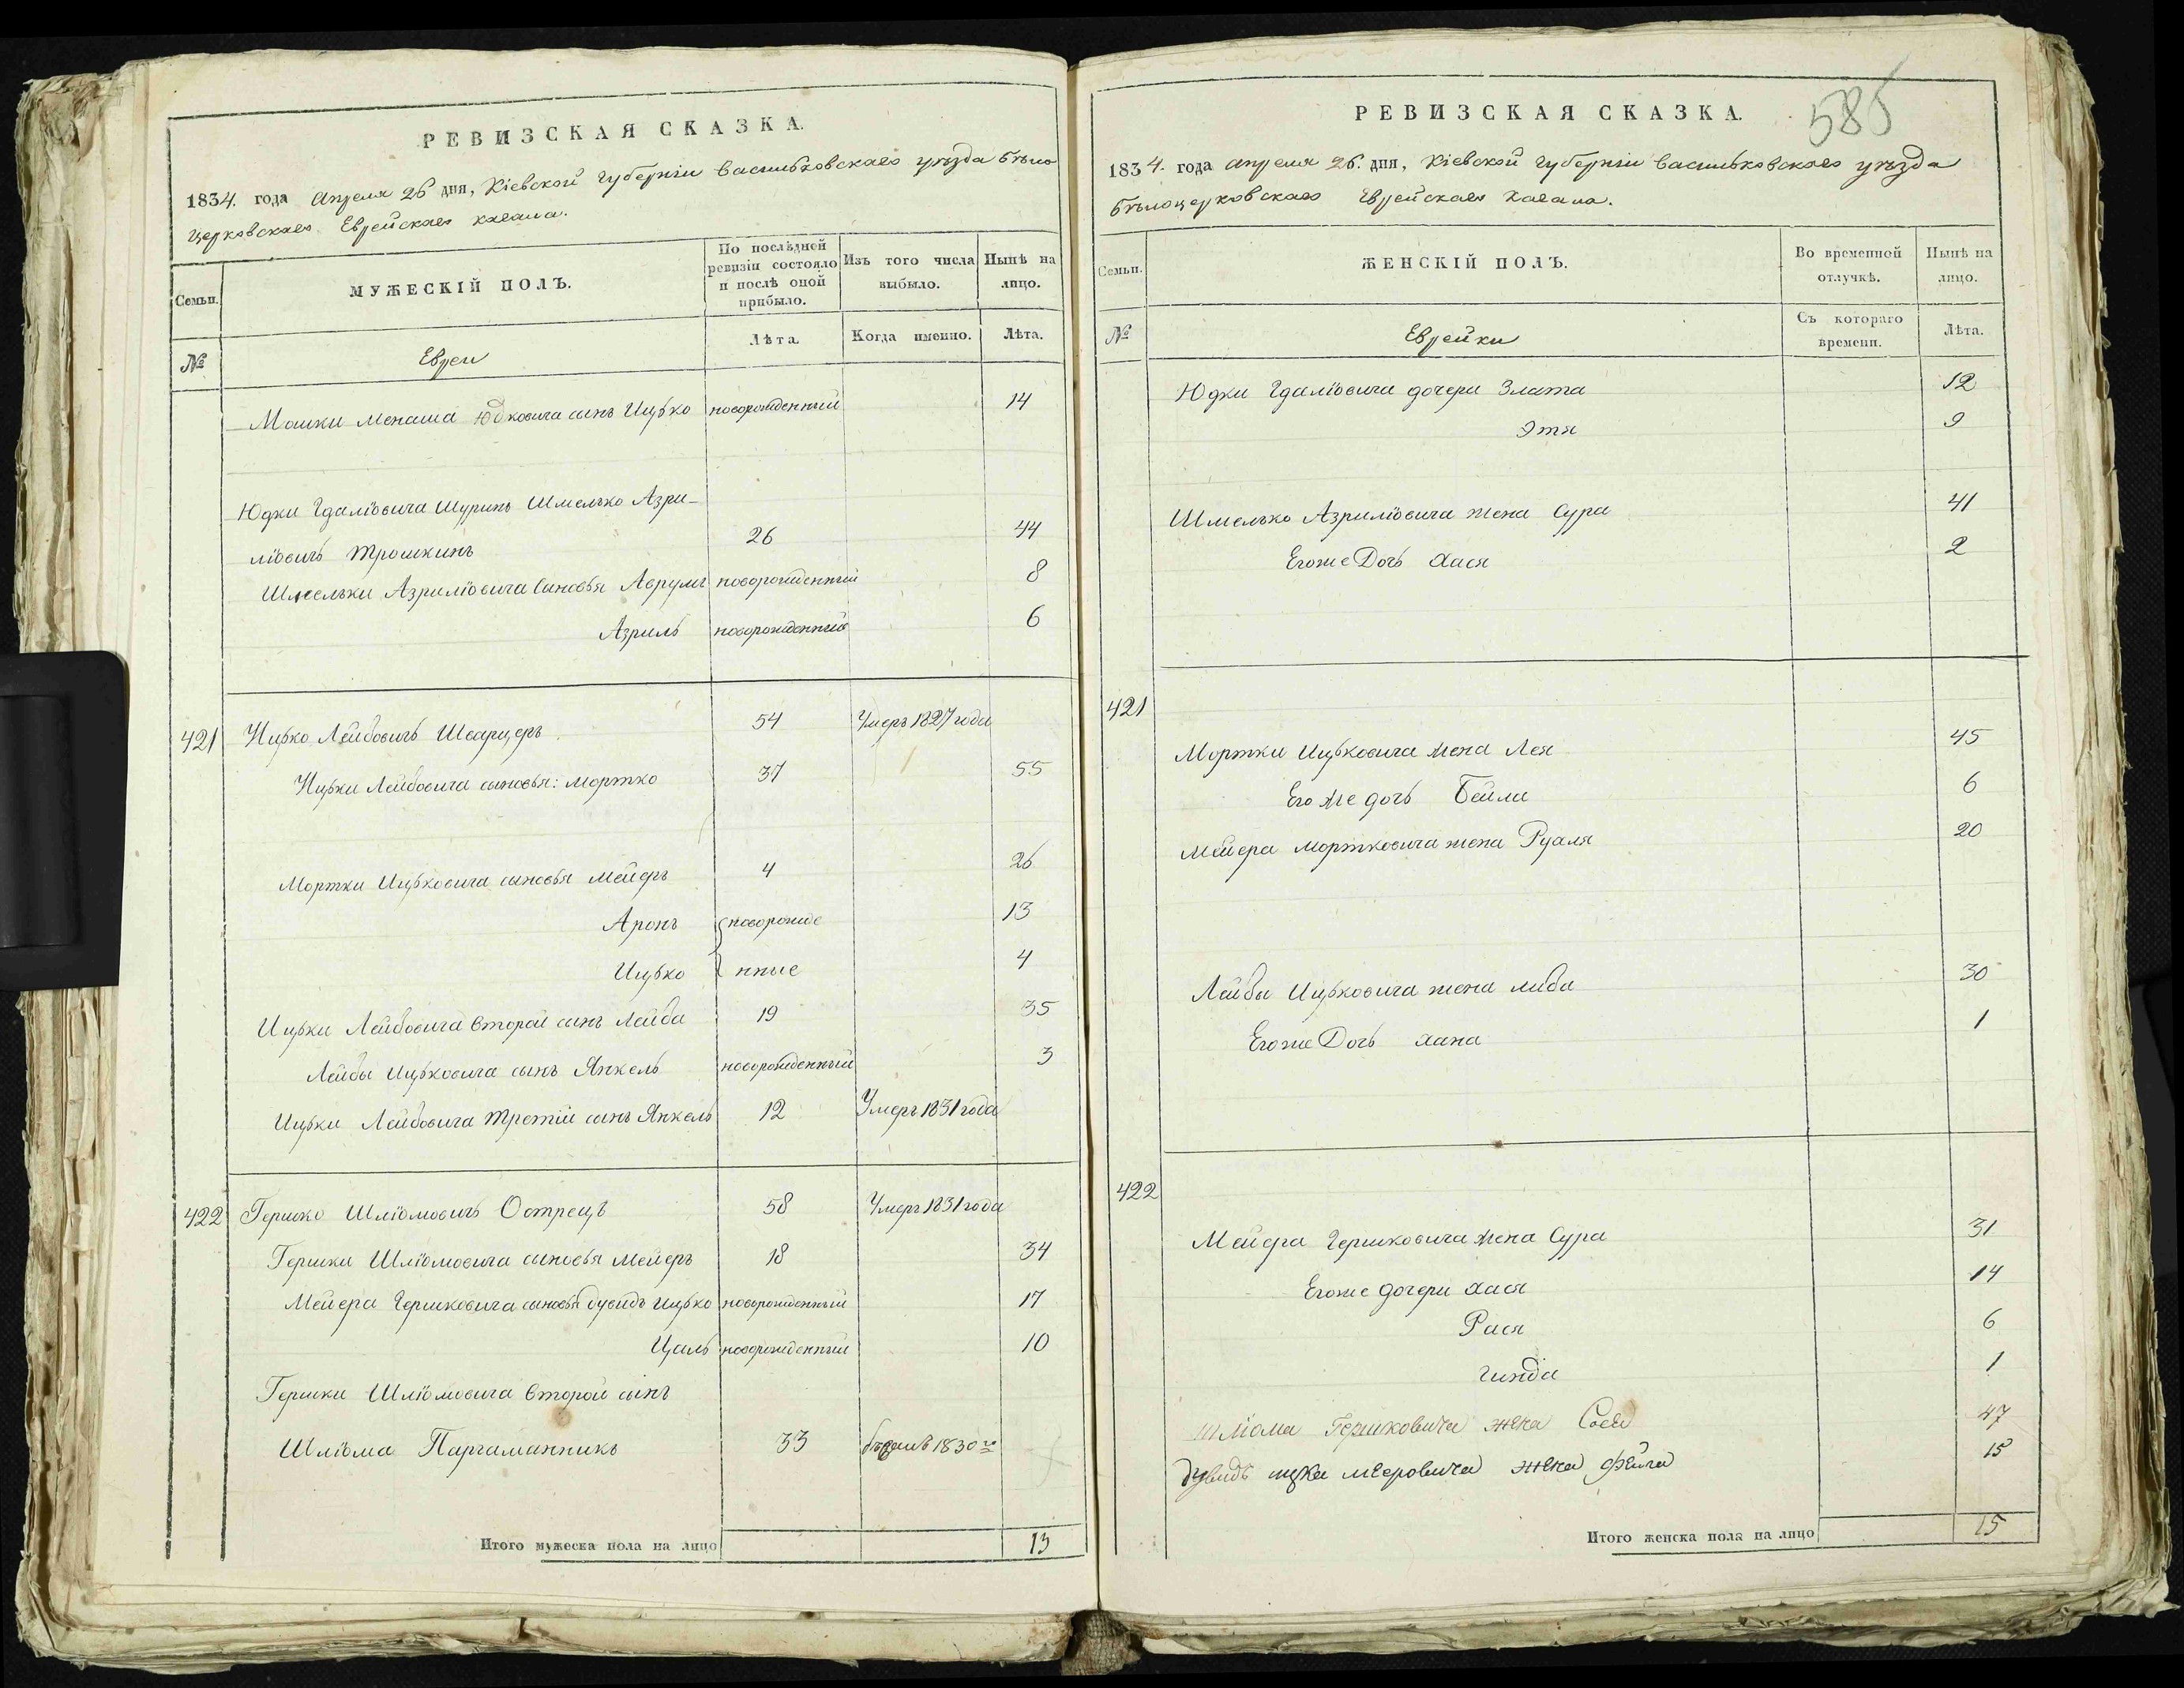 РЕВИЗСКАЯ СКАЗКА.
1834. года Апреля 26 дня, Кіевской Губерніи Васильковскаго уѣзда Бѣло
церковскаго Еврейскаго кагала.
Семьи.
МУЖЕСКІЙ ПОЛЪ.
По послѣдней ревизіи состояло и послѣ оной прибыло.
Изъ того числа выбыло.
Нынѣ на лицо.
№
Евреи
Лѣта
Когда именно.
Лѣта.
Мошки Менаша Юдковича сынъ Ицько новорожденный 14
Юдки Гдаліовича Шуринъ Шмелько Азри-
ліовичъ Трошкинъ 26 44
Шмельки Азриліовича Сыновья Аврумъ новорожденный 8
Азриль новорожденный 6
421 Ицько Лейбовичъ Шварцеръ 54 Умеръ 1827 года
Ицьки Лейбовича сыновья: Мортко 37 55
Мортки Ицьковича сыновья Мейеръ 4 26
Аронъ новорожде 13
Ицько нные 4
Ицьки Лейбовича второй сынъ Лейба 19 35
Лейбы Ицьковича сынъ Янкель новорожденный 3
Ицьки Лейбовича третій сынъ Янкель 12 Умеръ 1831 года
422 Гершко Шліомовичъ Острецъ 58 Умеръ 1831 года
Гершки Шліомовича сыновья Мейеръ 18 34
Мейера Гершковича сыновья Дувидъ Ицько новорожденный 17
Цаль новорожденный 10
Гершки Шліомовича второй сынъ
Шліома Паргаманникъ 33 1830го
Итого мужеска пола на лицо 13
РЕВИЗСКАЯ СКАЗКА.
585
1834. года Апреля 26. дня, Кіевской Губерніи Васильковскаго уѣзда
Бѣлоцерковскаго Еврейскаго Кагала.
Семьи.
ЖЕНСКІЙ ПОЛЪ.
Во временной отлучкѣ.
Нынѣ на лицо.
№
Еврейки
Съ котораго времени.
Лѣта.
Юдки Гдаліовича дочери Злата 12
Этя 9
Шмелько Азриліовича жена Сура 41
Егоже Дочь Хася 2
421
Мортки Ицьковича жена Лея 45
Его же дочь Бейла 6
Мейера Мортковича жена Рухля 20
Лейбы Ицьковича жена Либа 30
Егоже Дочь Хана 1
422
Мейера Гершковича жена Сура 31
Егоже дочери Хася 14
Рася 6
Гинда 1
Шліома Гершковича жена Сося 47
Дувидъ Ицка Мееровича жена Фейга 15
Итого женска пола на лицо 15